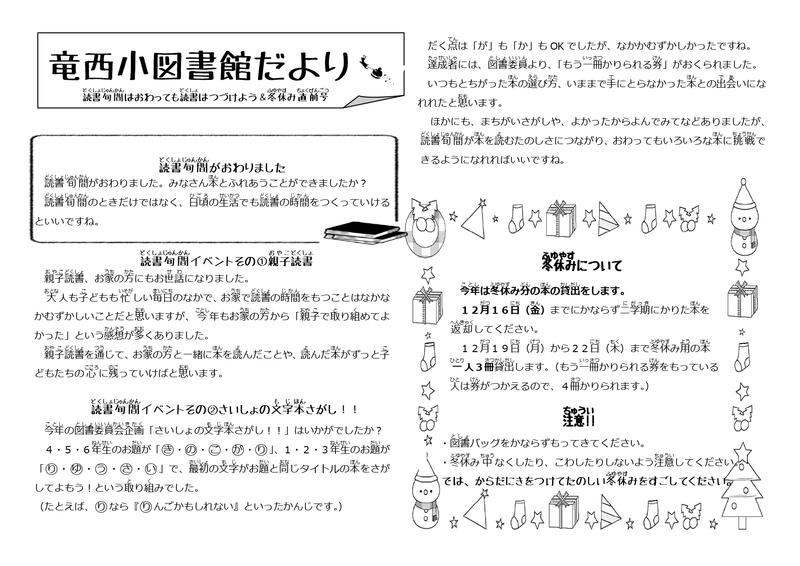 竜西小図書館だより
読書旬間はおわっても読書はつづけよう＆冬休み直前号
読書旬間がおわりました
読書旬間がおわりました。みなさん本とふれあうことができましたか？
読書旬間のときだけではなく、日頃の生活でも読書の時間をつくっていける
といいですね。
読書旬間イベントその①親子読書
親子読書、お家の方にもお世話になりました。
大人も子どもも忙しい毎日のなかで、お家で読書の時間をもつことはなかな
かむずかしいことだと思いますが、今年もお家の方から「親子で取り組めてよ
かった」という感想が多くありました。
親子読書を通じて、お家の方と一緒に本を読んだことや、読んだ本がずっと子
どもたちの心に残っていけばと思います。
読書旬間イベントその②さいしょの文字本さがし！！
今年の図書委員会企画「さいしょの文字本さがし！！」はいかがでしたか？
４・５・６年生のお題が「㋖・㋨・㋙・㋕・㋷」、１・２・３年生のお題が
「㋷・㋴・㋒・㋚・㋑」で、最初の文字がお題と同じタイトルの本をさが
してよもう！という取り組みでした。
（たとえば、㋷なら『㋷んごかもしれない』といったかんじです。）
だく点は「が」も「か」もOKでしたが、なかなかむずかしかったですね。
達成者には、図書委員より、「もう一冊かりられる券」がおくられました。
いつもとちがった本の選び方、いままで手にとらなかった本との出会いにな
れれたと思います。
ほかにも、まちがいさがしや、よかったからよんでみてなどありましたが、
読書旬間が本を読むたのしさにつながり、おわってもいろいろな本に挑戦で
きるようになれればいいですね。
冬休みについて
今年は冬休み分の本の貸出をします。
１２月１６日（金）までにかならず二学期にかりた本を
返却してください。
１２月１９日（月）から２２日（木）まで冬休み用の本
一人３冊貸出します。（もう一冊かりられる券をもっている
人は券がつかえるので、４冊かりられます。）
注意！！
・図書バッグをかならずもってきてください。
・冬休み中なくしたり、こわしたりしないよう注意してください。
では、からだにきをつけてたのしい冬休みをすごしてください。